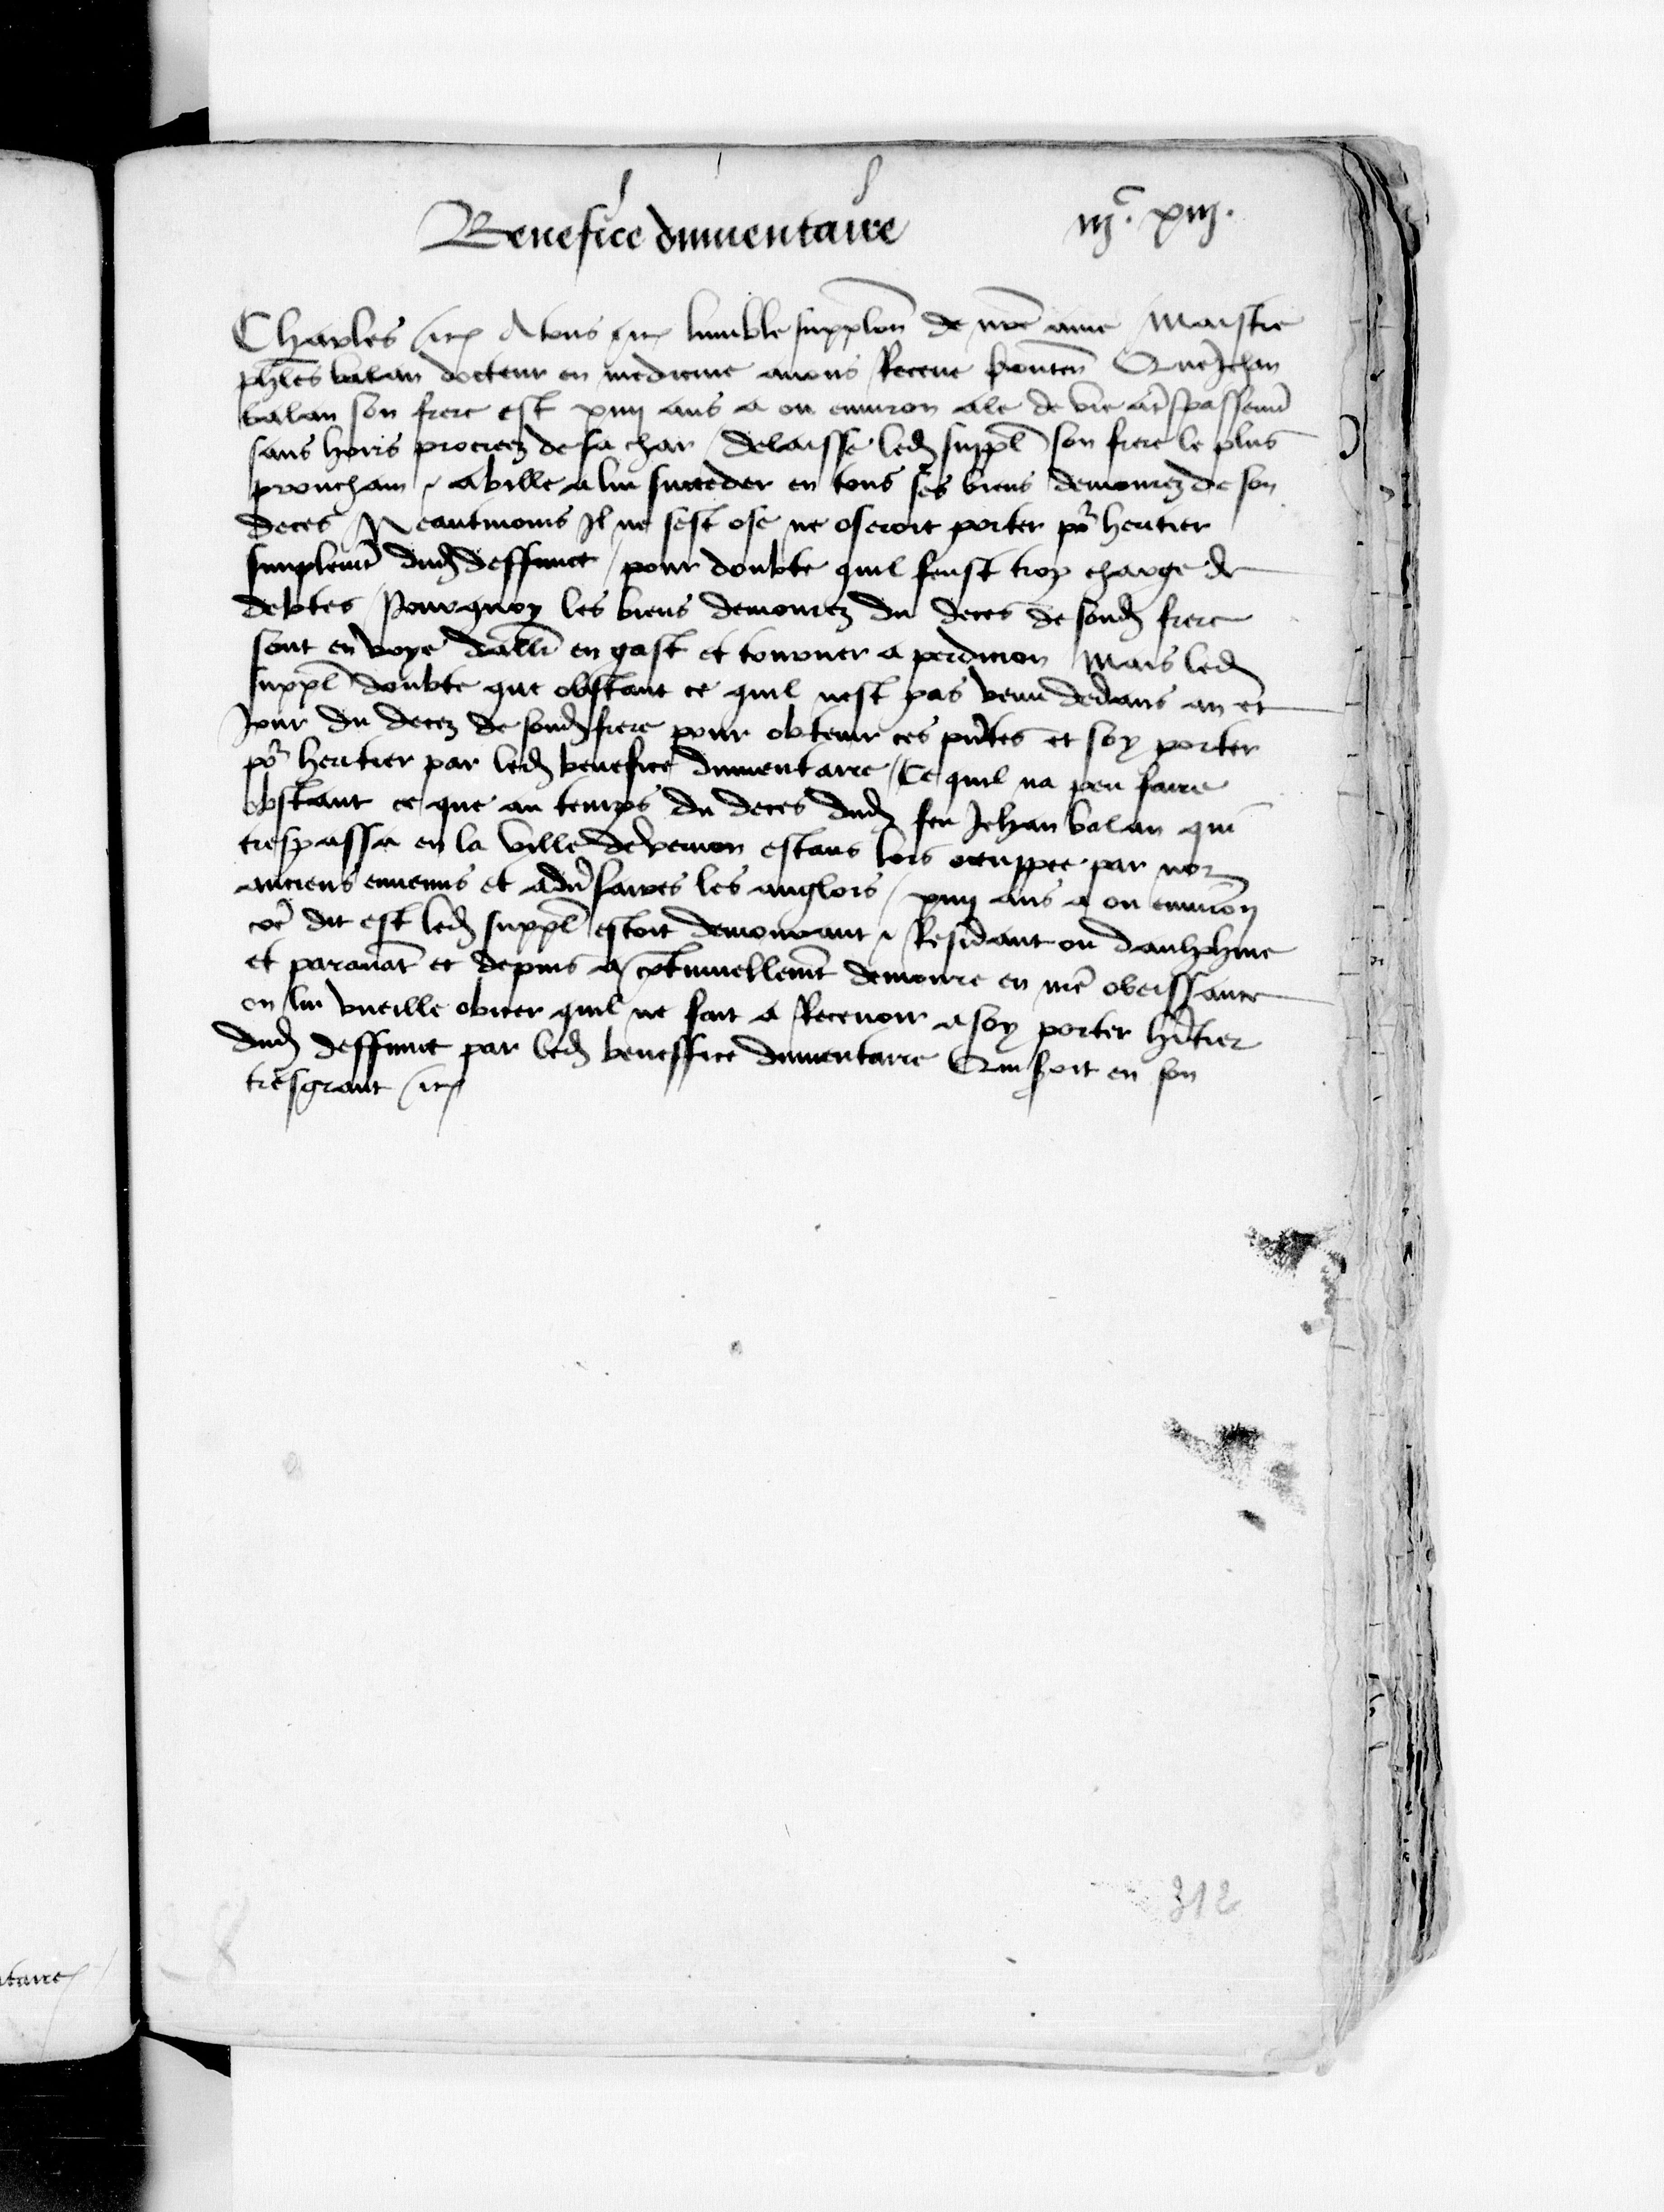 Benefice dinuentaire
iijc. xiij.
Charles etc A tous etc lumble supplicon de nre ame Maistre
phles balan docteur en medicine auons Receue conten Que Jehan
balan son frere est xiiij ans a ou enuiron ale de vie a trespassemt
sans hoirs procreez de sa char / delaisse led suppl son frere le plus
prouchain & abille a lui succeder en tous ses biens demourez de son
deces / Neantmoins Il ne sest ose ne oseroit porter por heritier
simplemt dud deffunct / pour doubte quil feust trop charge de
debtes / Pourquoy les biens demourez du deces de sond frere
sont en voye daller en gast et tourner a perdicion Mais led
suppl doubte que obstant ce quil nest pas venu dedans an et
Jour du decez de sond frere pour obtenir ces pntes et soy porter
por heritier par led benefice dinuentaire / Ce quil na peu faire
obstant ce que au temps du deces dud feu Jehan balan qui
trespassa en la ville de vernon estans lors occuppee par noz
anciens ennemis et aduersaires les anglois / xiiij ans a ou enuiron
coe dit est led suppl estoit demourant & Residant ou daulphine
et parauat et depuis a cotinuellemt demoure en nre obeissance
on lui vueille obicer quil ne fait a Receuoir a soy porter heritier
dud deffunct par led beneffice dinuentaire Qui soit en son
tresgrant etc
312
ntaire